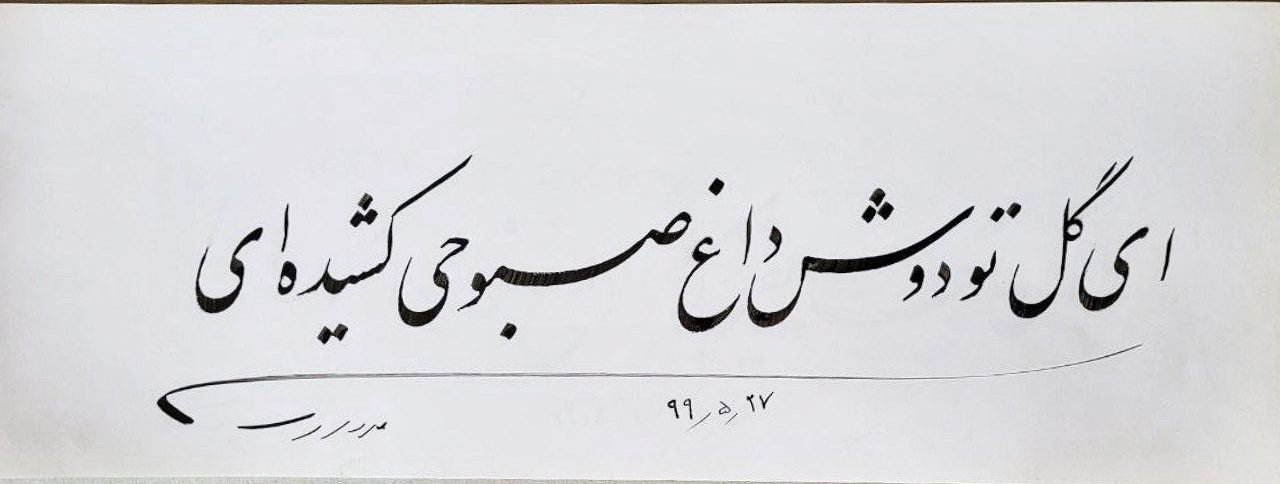 ای گل تو دوش داغ صبوحی کشیده ای
۹۹٫۵٫۲۷